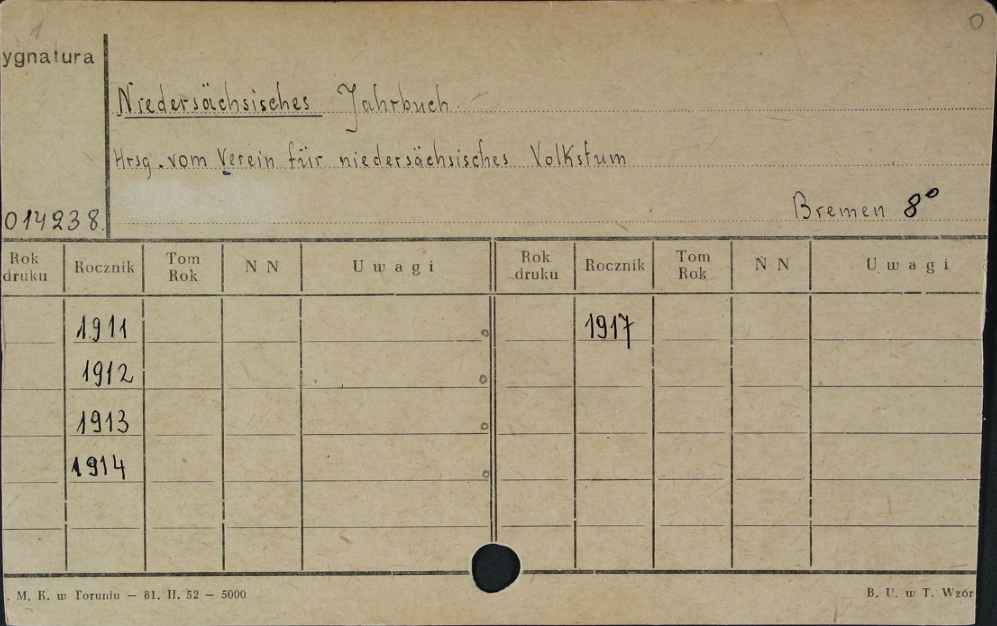 ygnatura
Niedersächsisches Jahrbuch
Hrsg. vom Verein für niedersächsisches Volkstum
Bremen 8°
014238.
Rok druku Rocznik Tom Rok N N Uwagi Rok druku Rocznik Tom Rok N N Uwagi
1911 1917
1912
1913
1914
. M. K. w Toruniu — 81. II. 52 — 5000 B. U. w T. Wzór